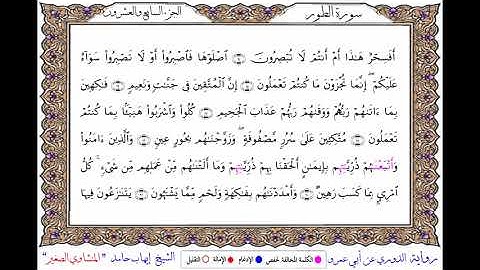 سورة الطور
الجزء السابع والعشرون
أَفَسِحْرٌ هَٰذَا أَمْ أَنتُمْ لَا تُبْصِرُونَ ۝ ٱصْلَوْهَا فَٱصْبِرُوٓا۟ أَوْ لَا تَصْبِرُوا۟ سَوَآءٌ
عَلَيْكُمْ إِنَّمَا تُجْزَوْنَ مَا كُنتُمْ تَعْمَلُونَ ۝ إِنَّ ٱلْمُتَّقِينَ فِى جَنَّٰتٍ وَنَعِيمٍ ۝ فَٰكِهِينَ
بِمَآ ءَاتَىٰهُمْ رَبُّهُمْ وَوَقَىٰهُمْ رَبُّهُمْ عَذَابَ ٱلْجَحِيمِ ۝ كُلُوا۟ وَٱشْرَبُوا۟ هَنِيٓـًٔا بِمَا كُنتُمْ
تَعْمَلُونَ ۝ مُتَّكِـِٔينَ عَلَىٰ سُرُرٍ مَّصْفُوفَةٍ وَزَوَّجْنَٰهُم بِحُورٍ عِينٍ ۝ وَٱلَّذِينَ ءَامَنُوا۟
وَأَتْبَعْنَٰهُمْ ذُرِّيَّٰتِهِم بِإِيمَٰنٍ أَلْحَقْنَا بِهِمْ ذُرِّيَّٰتِهِمْ وَمَآ أَلَتْنَٰهُم مِّنْ عَمَلِهِم مِّن شَىْءٍ كُلُّ
ٱمْرِئٍ بِمَا كَسَبَ رَهِينٌ ۝ وَأَمْدَدْنَٰهُم بِفَٰكِهَةٍ وَلَحْمٍ مِّمَّا يَشْتَهُونَ ۝ يَتَنَٰزَعُونَ فِيهَا
رواية الدوري عن أبي عمرو الكلمة المخالفة لحفص الإدغام الإمالة التقليل الشيخ إيهاب حامد "المنشاوي الصغير"